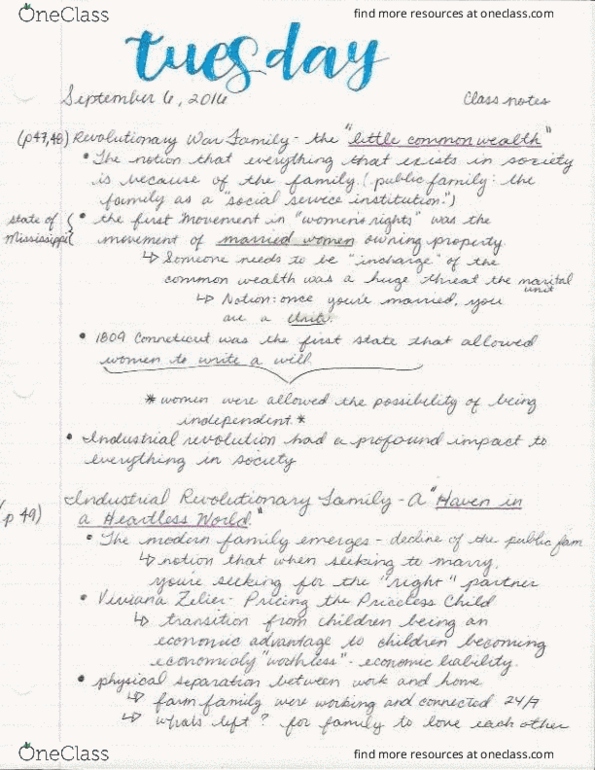 OneClass
find more resources at oneclass.com
tuesday
September 6, 2016
Class notes
(p47,48) Revolutionary War Family - the "little commonwealth"
• The notion that everything that exists in society
is because of the family. (public family: the
family as a "social service institution.")
state of Mississippi { • the first movement in "women's rights" was the
movement of married women owning property.
↳ Someone needs to be "incharge" of the
common wealth was a huge threat the marital
unit
↳ Notion: once you're married, you
are a unit.
• 1809 Conneticut was the first state that allowed
women to write a will.
* women were allowed the possibility of being
independent. *
• Industrial revolution had a profound impact to
everything in society
(p 49) Industrial Revolutionary Family - A "Haven in
a Heartless World."
• The modern family emerges - decline of the public fam
↳ notion that when seeking to marry,
you're seeking for the "right" partner
• Viviana Zelier - Pricing the Priceless Child
↳ transition from children being an
economic advantage to children becoming
economicaly "worthless" - economic liability.
• physical separation between work and home
↳ farm family were working and connected 24/7
↳ whats left? for family to love each other
OneClass
find more resources at oneclass.com